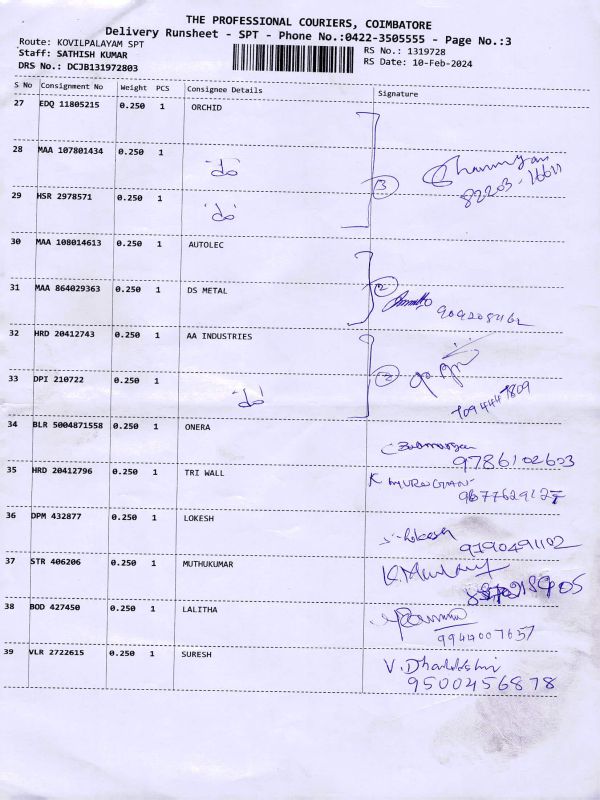 THE PROFESSIONAL COURIERS, COIMBATORE
Delivery Runsheet - SPT - Phone No.:0422-3505555 - Page No.:3
Route: KOVILPALAYAM SPT
Staff: SATHISH KUMAR
DRS No.: DCJB131972803
RS No.: 1319728
RS Date: 10-Feb-2024
S No Consignment No Weight PCS Consignee Details Signature
27 EDQ 11805215 0.250 1 ORCHID
28 MAA 107801434 0.250 1 "do"
3
82203-16611
29 HSR 2978571 0.250 1 "do"
30 MAA 108014613 0.250 1 AUTOLEC
31 MAA 864029363 0.250 1 DS METAL
2
32 HRD 20412743 0.250 1 AA INDUSTRIES
33 DPI 210722 0.250 1 "do"
2
7094447809
34 BLR 5004871558 0.250 1 ONERA
9786102603
35 HRD 20412796 0.250 1 TRI WALL
K MURUGHAN
9677629127
36 DPM 432877 0.250 1 LOKESH
Lokesh
9790491102
37 STR 406206 0.250 1 MUTHUKUMAR
38 BOD 427450 0.250 1 LALITHA
9944007657
39 VLR 2722615 0.250 1 SURESH
9500456878